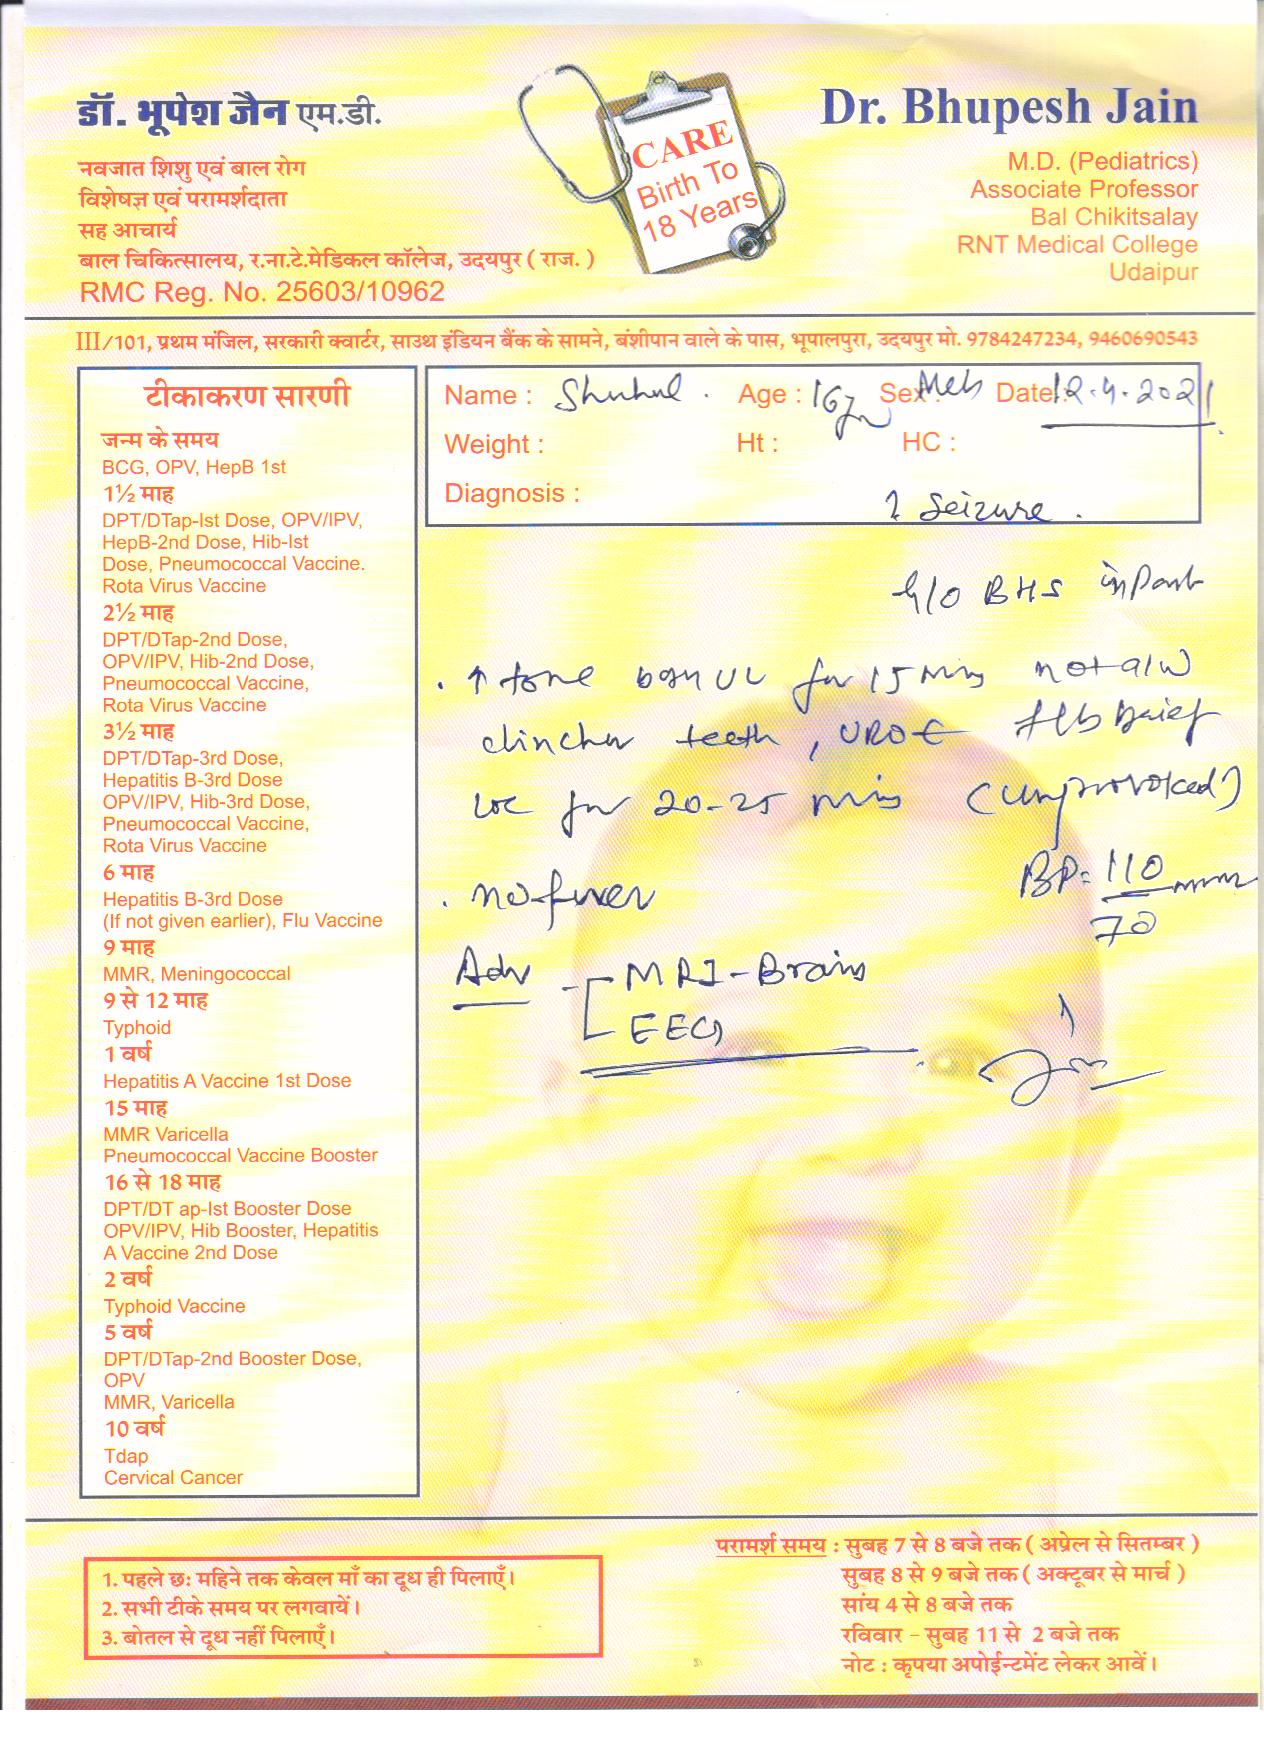 डॉ. भूपेश जैन एम.डी.
नवजात शिशु एवं बाल रोग
विशेषज्ञ एवं परामर्शदाता
सह आचार्य
बाल चिकित्सालय, र.ना.टे.मेडिकल कॉलेज, उदयपुर ( राज. )
RMC Reg. No. 25603/10962
CARE
Birth To
18 Years
Dr. Bhupesh Jain
M.D. (Pediatrics)
Associate Professor
Bal Chikitsalay
RNT Medical College
Udaipur
III/101, प्रथम मंजिल, सरकारी क्वार्टर, साउथ इंडियन बैंक के सामने, बंशीपान वाले के पास, भूपालपुरा, उदयपुर मो. 9784247234, 9460690543
टीकाकरण सारणी
जन्म के समय
BCG, OPV, HepB 1st
1½ माह
DPT/DTap-Ist Dose, OPV/IPV,
HepB-2nd Dose, Hib-Ist
Dose, Pneumococcal Vaccine.
Rota Virus Vaccine
2½ माह
DPT/DTap-2nd Dose,
OPV/IPV, Hib-2nd Dose,
Pneumococcal Vaccine,
Rota Virus Vaccine
3½ माह
DPT/DTap-3rd Dose,
Hepatitis B-3rd Dose
OPV/IPV, Hib-3rd Dose,
Pneumococcal Vaccine,
Rota Virus Vaccine
6 माह
Hepatitis B-3rd Dose
(If not given earlier), Flu Vaccine
9 माह
MMR, Meningococcal
9 से 12 माह
Typhoid
1 वर्ष
Hepatitis A Vaccine 1st Dose
15 माह
MMR Varicella
Pneumococcal Vaccine Booster
16 से 18 माह
DPT/DT ap-Ist Booster Dose
OPV/IPV, Hib Booster, Hepatitis
A Vaccine 2nd Dose
2 वर्ष
Typhoid Vaccine
5 वर्ष
DPT/DTap-2nd Booster Dose,
OPV
MMR, Varicella
10 वर्ष
Tdap
Cervical Cancer
Name : Age : 16yr Sex : Date : 12.4.2021
Weight : Ht : HC :
Diagnosis :
? Seizure .
h/o BHS in past
. ↑ tone for 15 min not a/w
teeth, UROE f/b brief
LOC for 20-25 min (unprovoked)
. no fever
BP= 110/70 mm
Adv - MRI-Brain
EEG
1. पहले छः महिने तक केवल माँ का दूध ही पिलाएँ।
2. सभी टीके समय पर लगवायें।
3. बोतल से दूध नहीं पिलाएँ।
परामर्श समय : सुबह 7 से 8 बजे तक ( अप्रेल से सितम्बर )
सुबह 8 से 9 बजे तक ( अक्टूबर से मार्च )
सांय 4 से 8 बजे तक
रविवार - सुबह 11 से 2 बजे तक
नोट : कृपया अपोईन्टमेंट लेकर आवें।